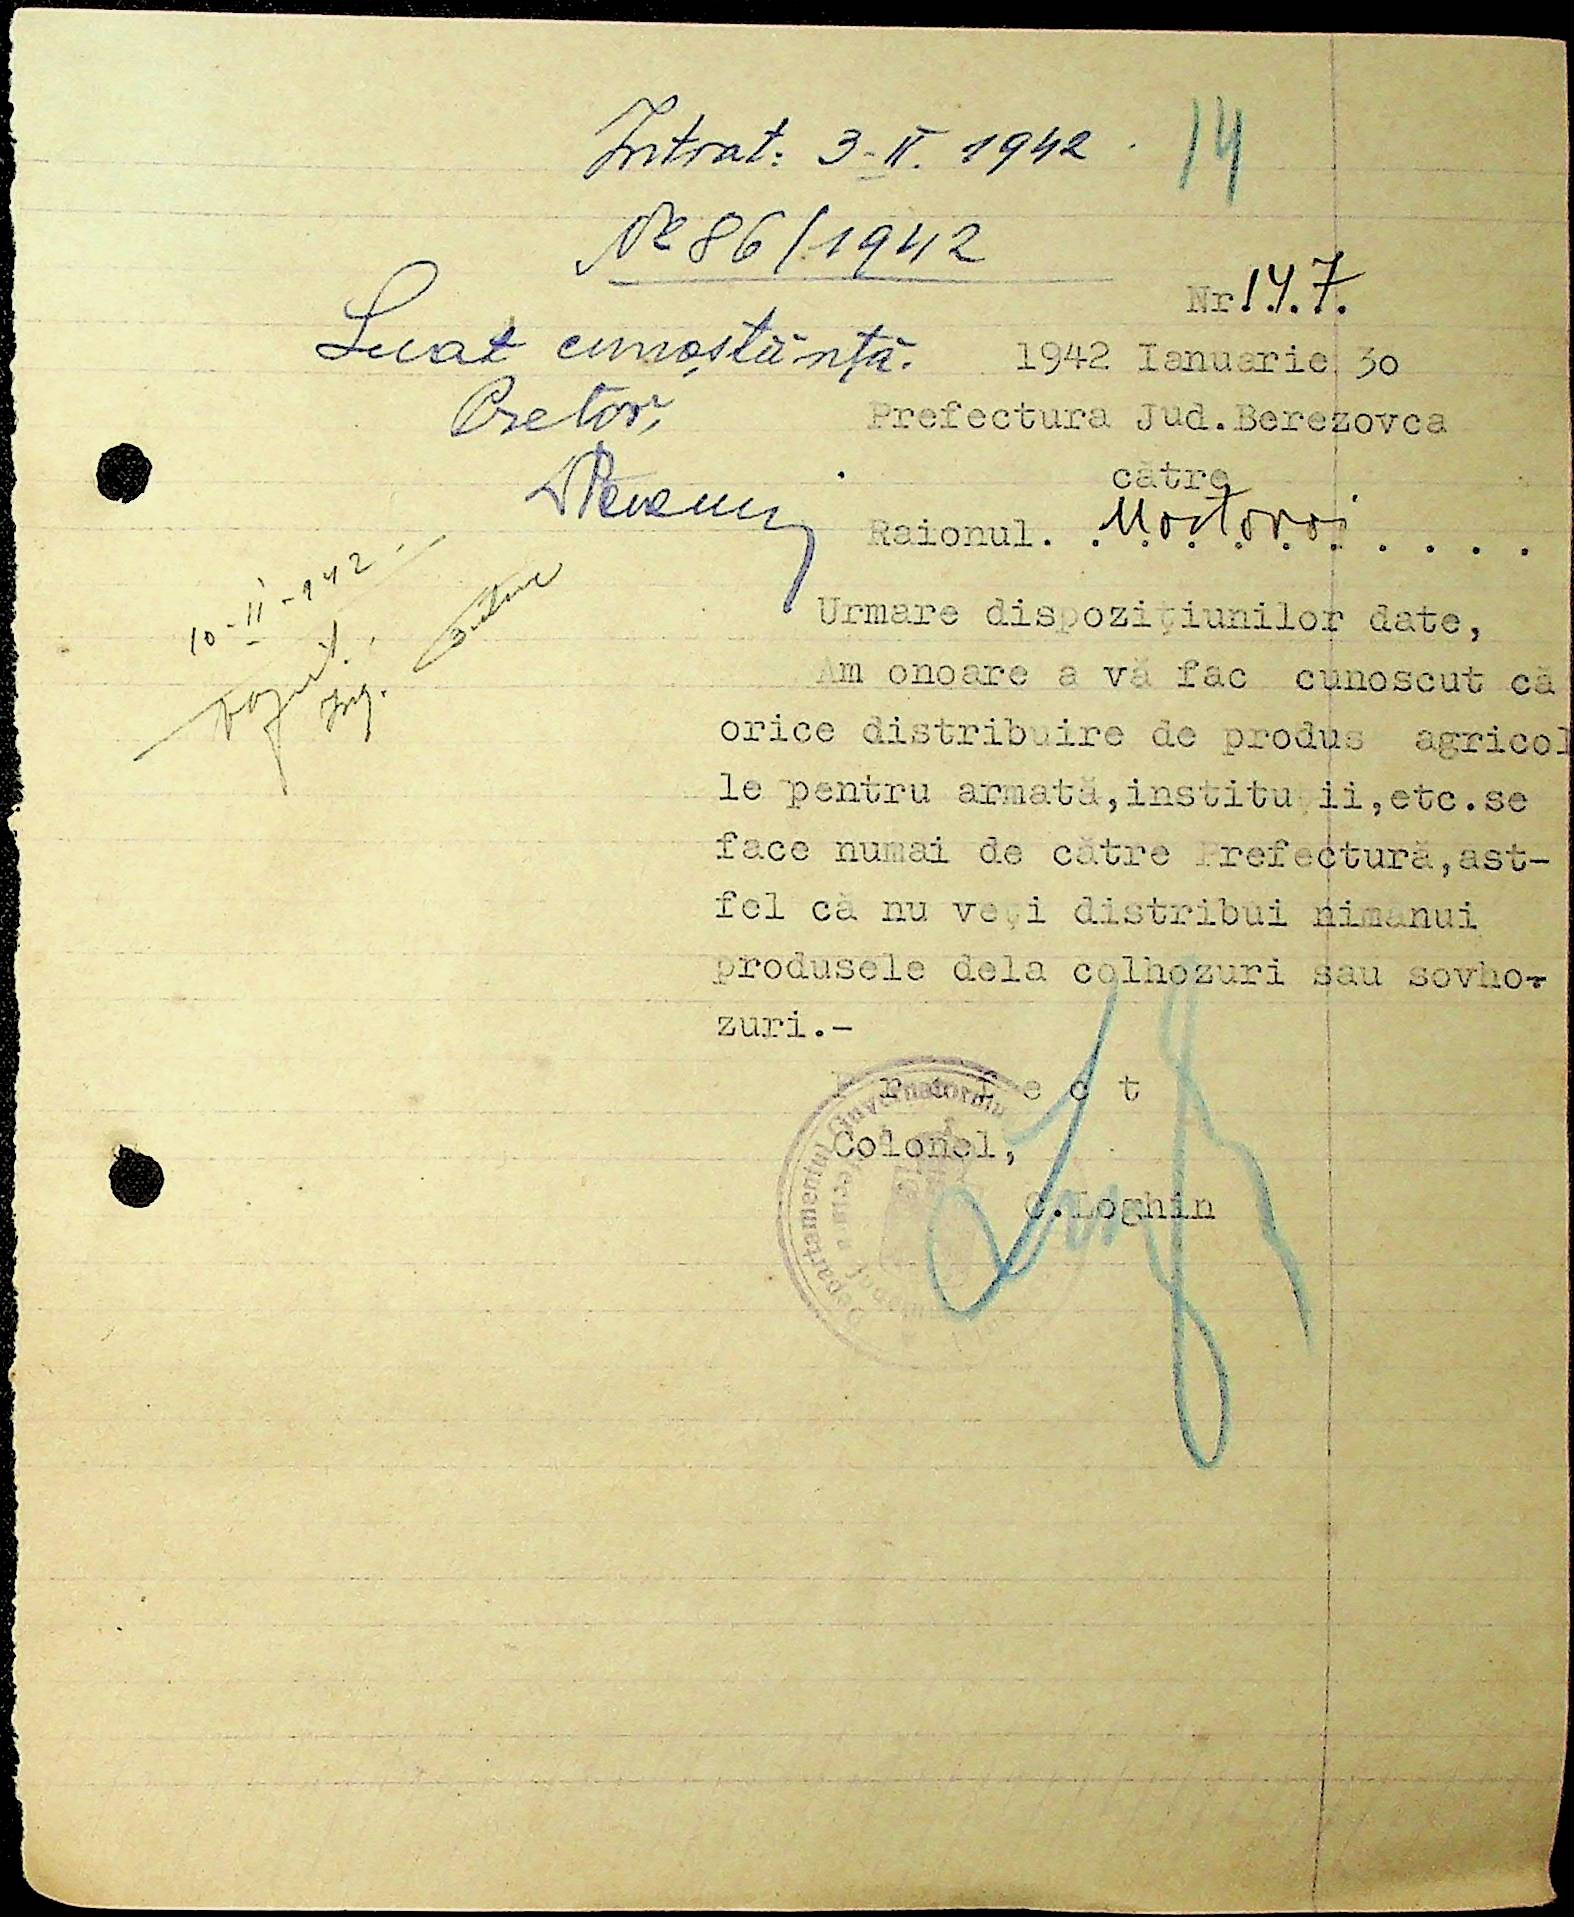 Intrat: 3-II. 1942
14
№ 86/1942
Nr 147.
Luat cunoștănță.
1942 Ianuarie 30
Pretor,
Prefectura Jud.Berezovca
către
Raionul. Mostovoi . . . .
10-II-942
Ing.
Urmare dispozițiunilor date,
Am onoare a vă fac cunoscut că
orice distribuire de produs agricol
le pentru armată,instituții,etc.se
face numai de către Prefectură,ast-
fel că nu veți distribui nimanui
produsele dela colhozuri sau sovho-
zuri.-
P r e f e c t
Colonel,
C.Loghin
Departamentul Guvernatorului